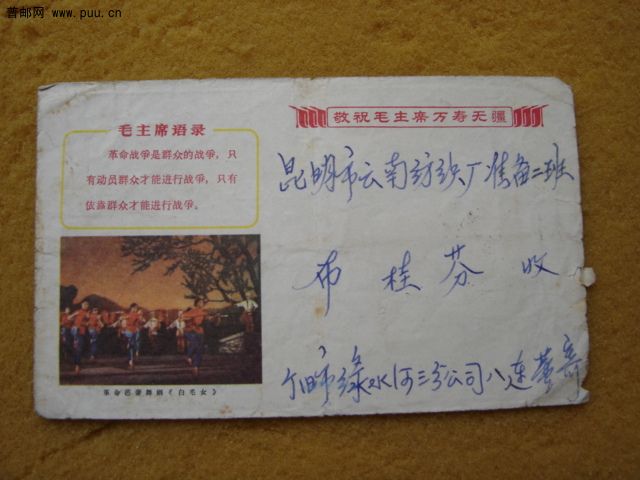 普邮网 www.puu.cn
敬祝毛主席万寿无疆
毛主席语录
革命战争是群众的战争，只
有动员群众才能进行战争，只有
依靠群众才能进行战争。
昆明市云南纺织厂准备二班
布桂芬 收
革命芭蕾舞剧《白毛女》
个旧市绿水河三分公司八连 寄